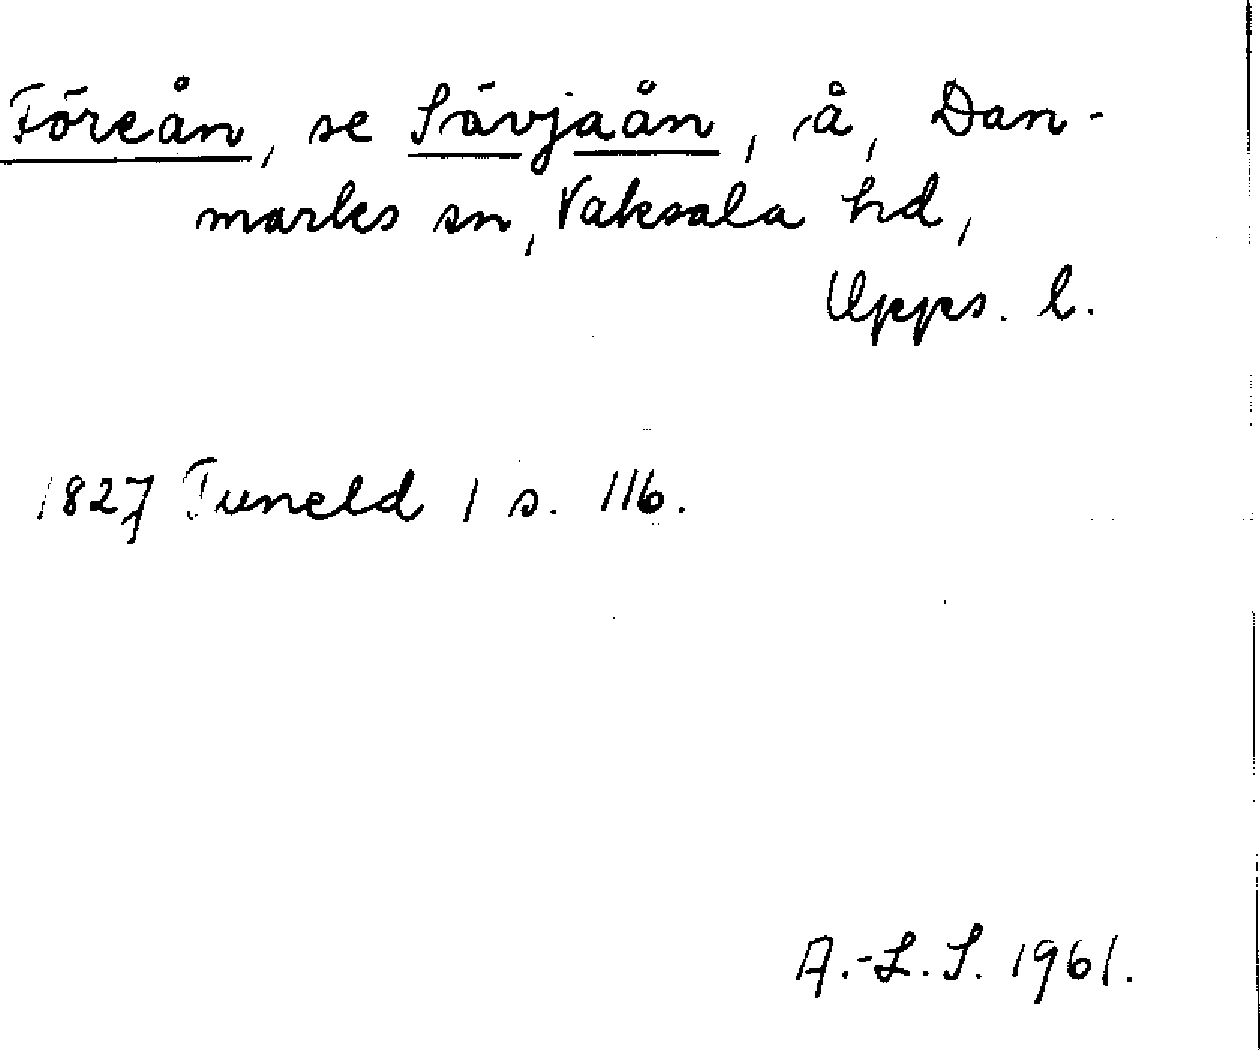 Föreån, se Sävjaån, å, Dan-
marks sn, Vaksala hd,
Upps. l.
1827 Tuneld 1 s. 116.
A.-L. S. 1961.